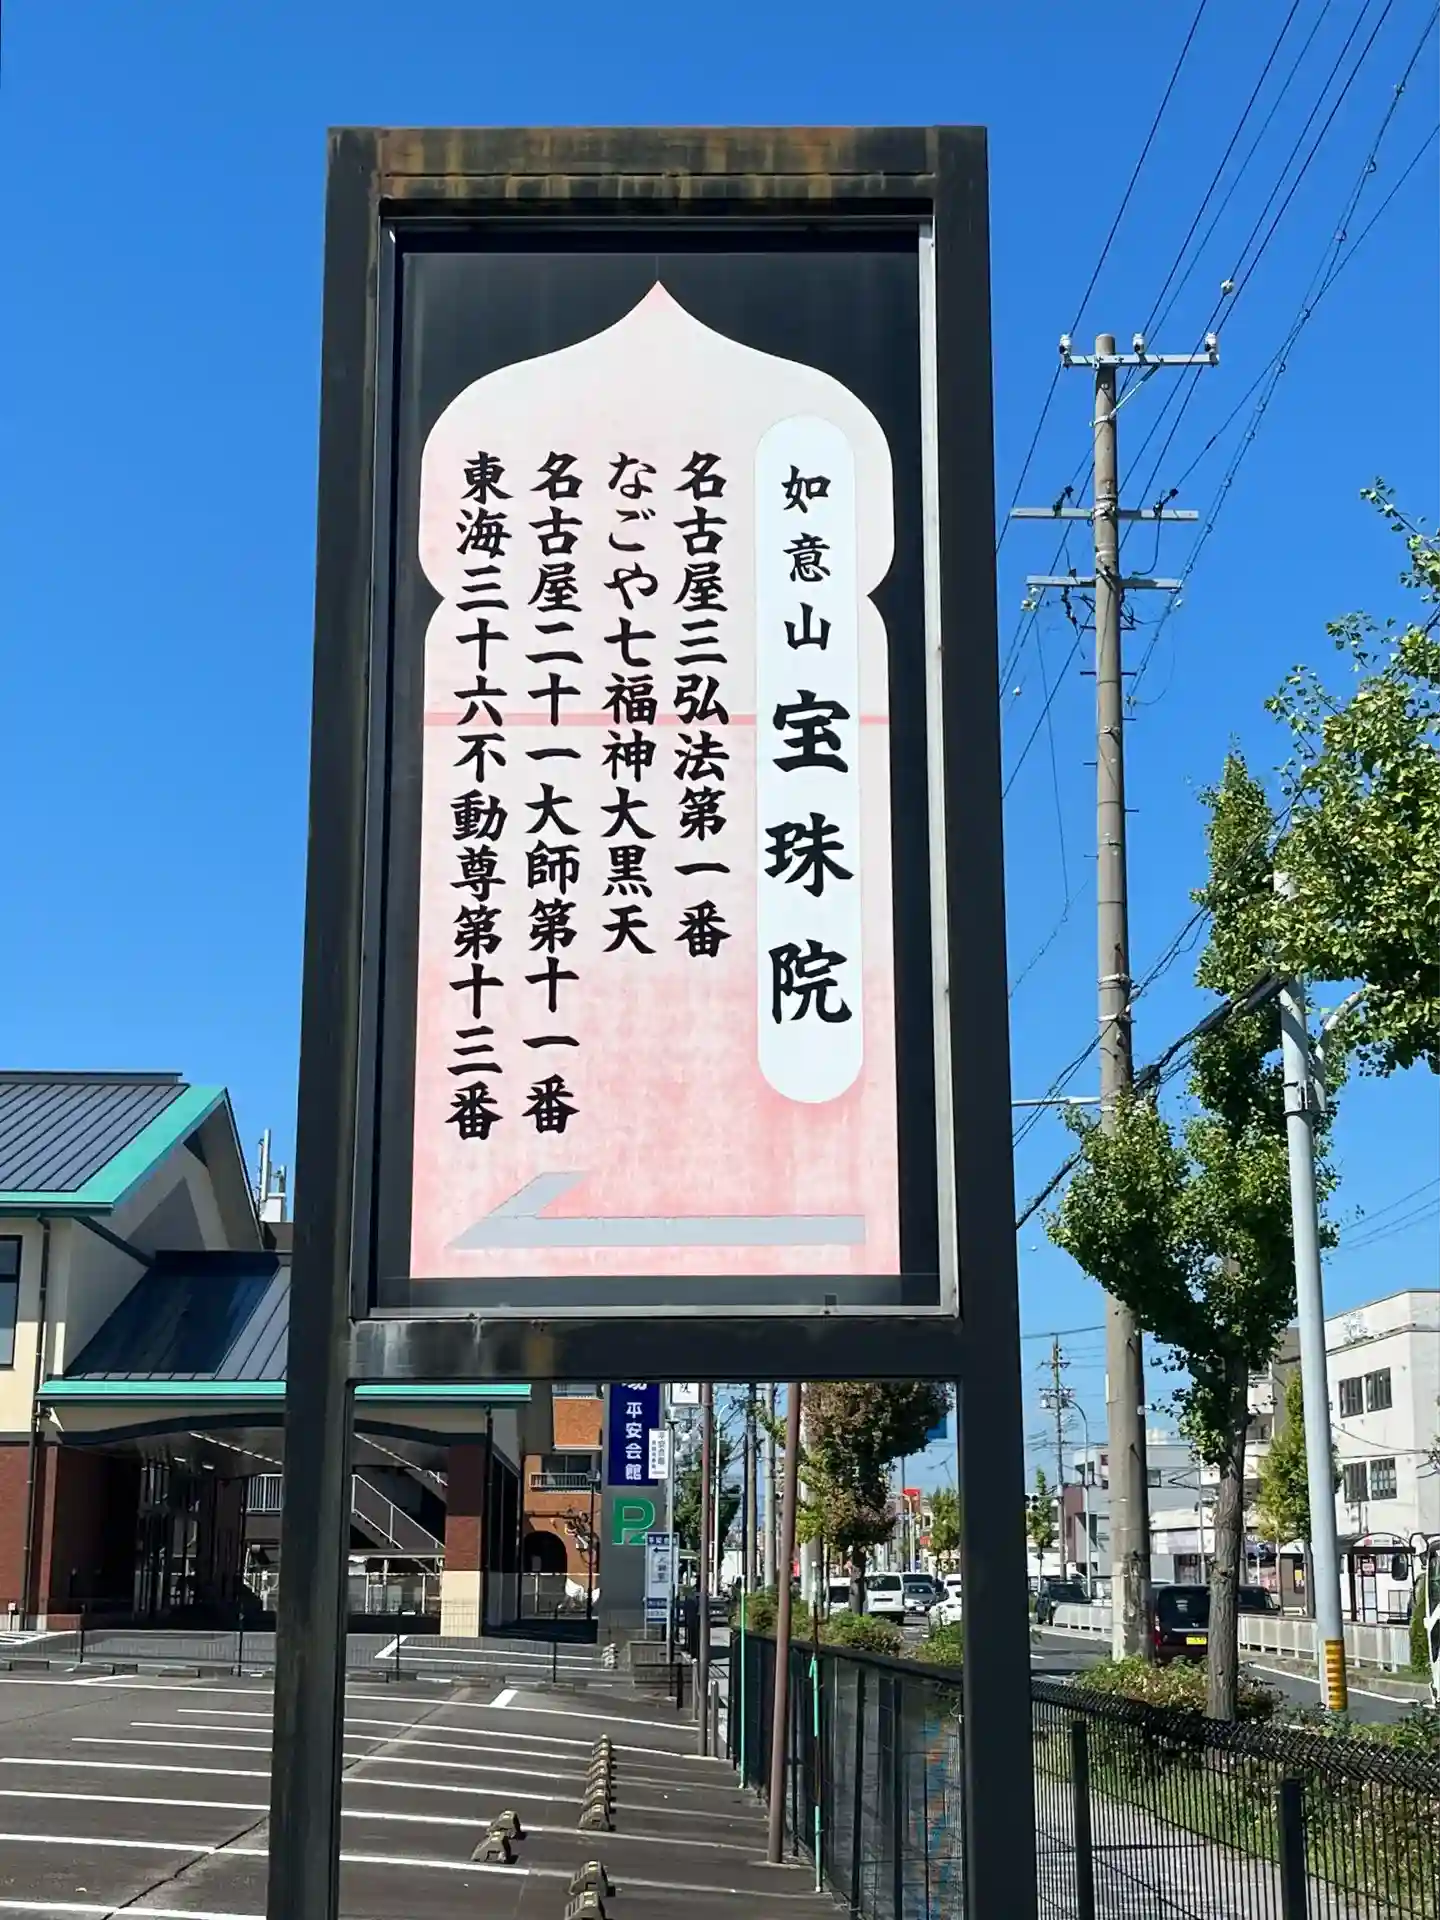 如意山 宝珠院
名古屋三弘法第一番
なごや七福神大黒天
名古屋二十一大師第十一番
東海三十六不動尊第十三番
平安会館
P